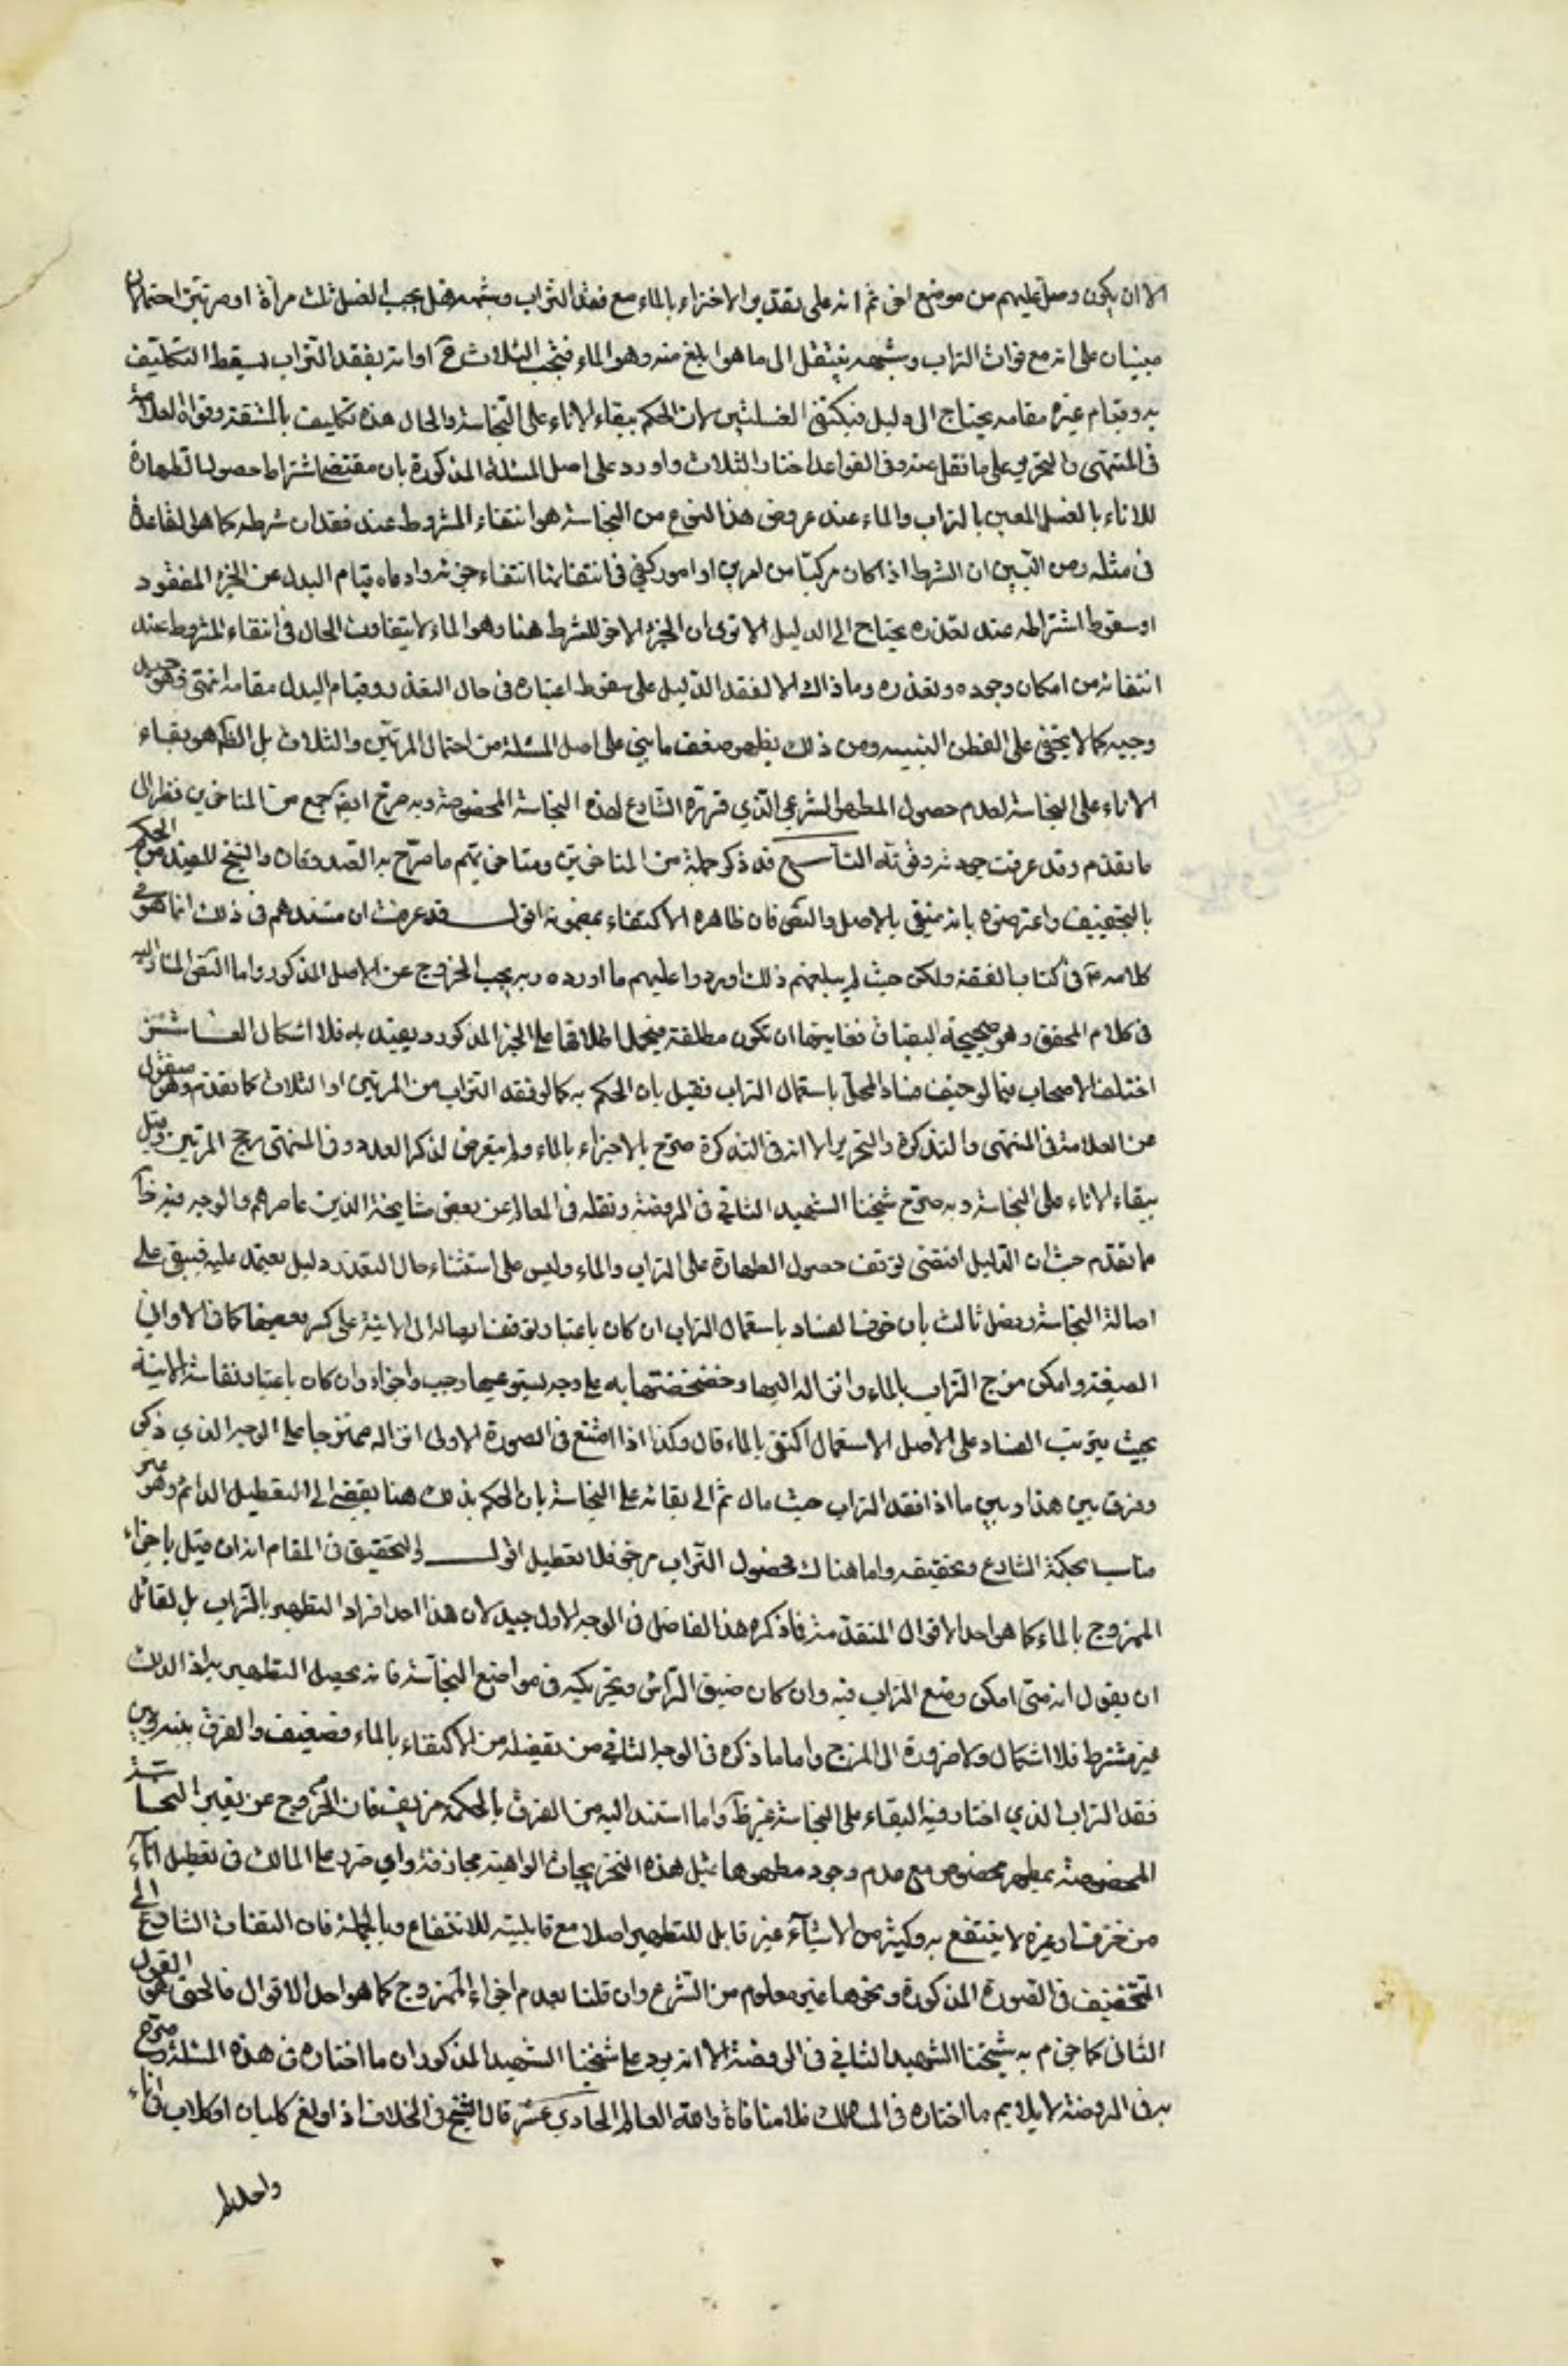 الا ان يكون وصل اليهم من موضع اخر ثم انه على تقدير الاجتزاء بالماء مع فقد التراب وشبهه فهل يجب الغسل ثلث مراة او مرتين احتمالان
مبنيان على انه مع فوات التراب وشبهه ينتقل الى ما هو ابلغ منه وهو الماء فتجب الثلاث ح او انه بفقد التراب يسقط التكليف
به وقيام غيره مقامه يحتاج الى دليل فيكتفى الغسلتين لان الحكم ببقاء الاناء على النجاسة والحال هذه تكليف بالمشقة وقواه العلامة
فى المنتهى والتحرير على ما نقل عنه وفى القواعد اختار الثلاث واورد على اصل المسئلة المذكورة بان مقتضى اشتراط حصول الطهارة
للاناء بالغسل المعين بالتراب والماء عند عروض هذا النوع من النجاسة هو انتفاء المشروط عند فقدان شرطه كما هو القاعدة
فى مثله ومن البين ان الشرط اذا كان مركبا من امرين او امور كفى فى انتفائها انتفاء جزئه وادعاه قيام البدل عن الجزء المفقود
او سقوط اشتراطه عند تعذره يحتاج الى الدليل الا ترى ان الجزء الاخر للشرط هنا وهو الماء لا يتفاوت الحال فى انتفاء المشروط عند
انتفائه من امكان وجوده وتعذره وما ذاك الا لفقد الدليل على سقوط اعتباره فى حال التعذر وقيام البدل مقامه انتهى وهو جيد
وجيه كما لا يخفى على الفطن النبيه ومن ذلك يظهر ضعف ما بنى على اصل المسئلة من احتمال المرتين والثلاث بل الحكم هو بقاء
الاناء على النجاسة لعدم حصول المطهر الشرعي الذي قرره الشارع لهذه النجاسة المخصوصة وبه صرح ايض جمع من المتاخرين نظرا الى
ما تقدم وقد عرفت جودته وقوته التاسع قد ذكر جملة من المتاخرين ومتاخريهم ما صرح به الصدوقان والشيخ المفيد من الحكم
بالتجفيف واعترضوه بانه منفى بالاصل والنص فان ظاهره الاكتفاء بمضمونه اقول قد عرفت ان مستندهم فى ذلك انما هو
كلامه ع فى كتاب الفقه ولكن حيث لم يبلغهم ذلك اوردوا عليهم ما اورده وبه يجب الخروج عن الاصل المذكور واما النص المشار اليه
فى كلام المحقق وهو صحيحة البقباق فغايتها ان تكون مطلقة فيحمل اطلاقها على الخبر المذكور ويقيد به فلا اشكال العاشر
اختلف الاصحاب فيما لو خيف فساد المحل باستعمال التراب فقيل بان الحكم به كما لو فقد التراب من المرتين او الثلاث كما تقدم وهو منقول
عن العلامة فى المنتهى والتذكرة والتحرير الا انه فى التذكرة صرح بالاجزاء بالماء ولم يتعرض لذكر العدد وفى المنتهى رجح المرتين وقيل
ببقاء الاناء على النجاسة وبه صرح شيخنا الشهيد الثاني فى الروضة ونقله فى المعالم عن بعض مشايخه الذين عاصرهم والوجه فيه ظ
مما تقدم حيث ان الدليل اقتضى توقف حصول الطهارة على التراب والماء وليس على استثناء حال التعذر دليل يعتمد عليه فيبقى على
اصالة النجاسة وفصل ثالث بان خوف الفساد باستعمال التراب ان كان باعتبار توقف ايصاله الى الانية على كسر بعضها كما فى الاواني
الضيقة وامكن مزج التراب بالماء وانزاله اليها وخضخضتها به على وجه يستوعبها وجب واجزاء وان كان باعتبار نفاسة الانية
بحيث يترتب الفساد على الاصل الاستعمال اكتفى بالماء قال وكذا اذا امتنع فى الصورة الاولى انزاله ممتزجا على الوجه الذي ذكر
وفرق بين هذا وبين ما اذا فقد التراب حيث مال ثم الى بقائه على النجاسة بان الحكم بذلك هنا يفضى الى التعطيل الدائم وهو غير
مناسب لحكمة الشارع وتخفيفه واما هناك فحصول التراب مرجو فلا تعطيل اقول والتحقيق فى المقام انه ان قيل باجزاء
الممزوج بالماء كما هو احد الاقوال المتقدمة فما ذكره هذا الفاضل فى الوجه الاول جيد لان هذا احد افراد التطهير بالتراب بل لقائل
ان يقول انه متى امكن وضع التراب فيه وان كان ضيق الراس وتحريكه فى مواضع النجاسة فانه يحصل التطهير به اذ الدلك
غير مشترط فلا اشكال ولا ضرورة الى المزج واما ما ذكره فى الوجه الثاني من تفصيله من الاكتفاء بالماء فضعيف والفرق بينه وبين
فقد التراب الذي اختار فيه البقاء على النجاسة غير ظ واما استند اليه من الفرق بالحكمة مزيف فان الخروج عن تعيين النجاسة
المخصوصة بمطهر مخصوص مع عدم وجود مطهرها بمثل هذه التخريجات الواهية مجازفة واي ضرر على المالك فى تعطيل اناء
من خزف او غيره لا ينتفع به وكثير من الاشياء غير قابل للتطهير اصلا مع قابليته للانتفاع وبالجملة فان التفات الشارع الى
التخفيف فى الصورة المذكورة ونحوها غير معلوم من الشرع وان قلنا بعدم اجزاء الممزوج كما هو احد الاقوال فالحق هو القول
الثاني كما جزم به شيخنا الشهيد الثاني فى الروضة الا انه يرد على شيخنا الشهيد المذكور ان ما اختاره فى هذه المسئلة وصرح
به فى الروضة لا يلايم ما اختاره فى المسالك فلا منافاة والله العالم الحادي عشر قال الشيخ فى الخلاف اذا ولغ كلبان او كلاب فى اناء
واحد